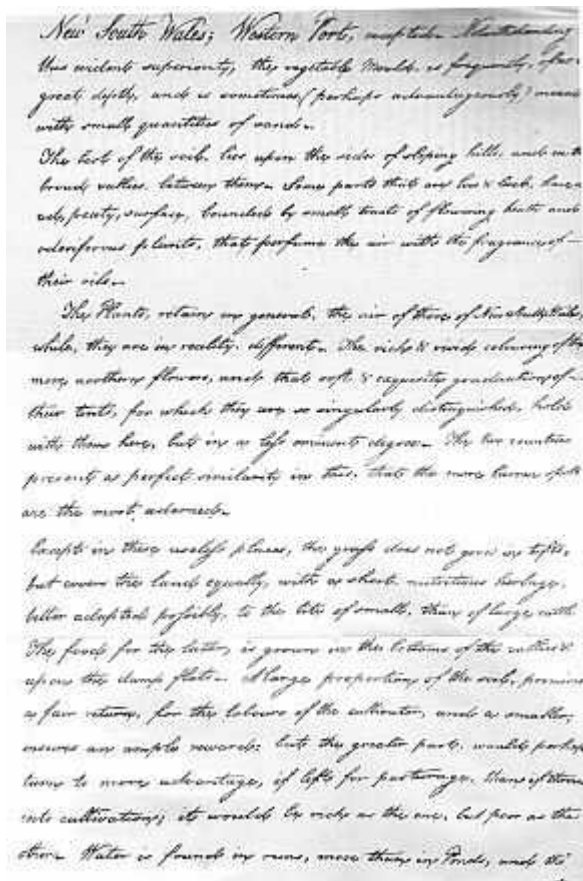 New South Wales; Western Port, excepted. Notwithstanding
this evident superiority, the vegetable mould, is frequently, of no
great depth, and is sometimes (perhaps advantageously) mixed
with small quantities of sand.
The best of the soil, lies upon the sides of sloping hills, and in the
broad vallies between them. Some parts that are low & have
peaty, surface, bounded by small tracts of flowering heath and
odoriferous plants, that perfume the air with the fragrance of
their oils.
The Plants, retain in general, the air of those of New South Wales,
while, they are in reality, different. The rich & vivid colouring of the
more northern flowers, and that soft & exquisite graduation of
their tints, for which they are so singularly distinguished, hold
with them here, but in a less eminent degree. The two countries
present a perfect similarity in this, that the more barren spots
are the most adorned.
Except in these useless places, the grass does not grow in tufts,
but covers the land equally, with a short nutritious herbage,
better adapted possibly, to the bite of small, than of large cattle.
The food for the latter, is grown in the bottoms of the vallies &
upon the damp flats. A large proportion of the soil, promises
a fair return, for the labours of the cultivator, and a smaller,
ensures an ample reward: but the greater part, would perhaps
turn to more advantage, if left for pasturage, than if thrown
into cultivation; it would be rich as the one, but poor as the
other. Water is found in runs, more than in Ponds, and tho'